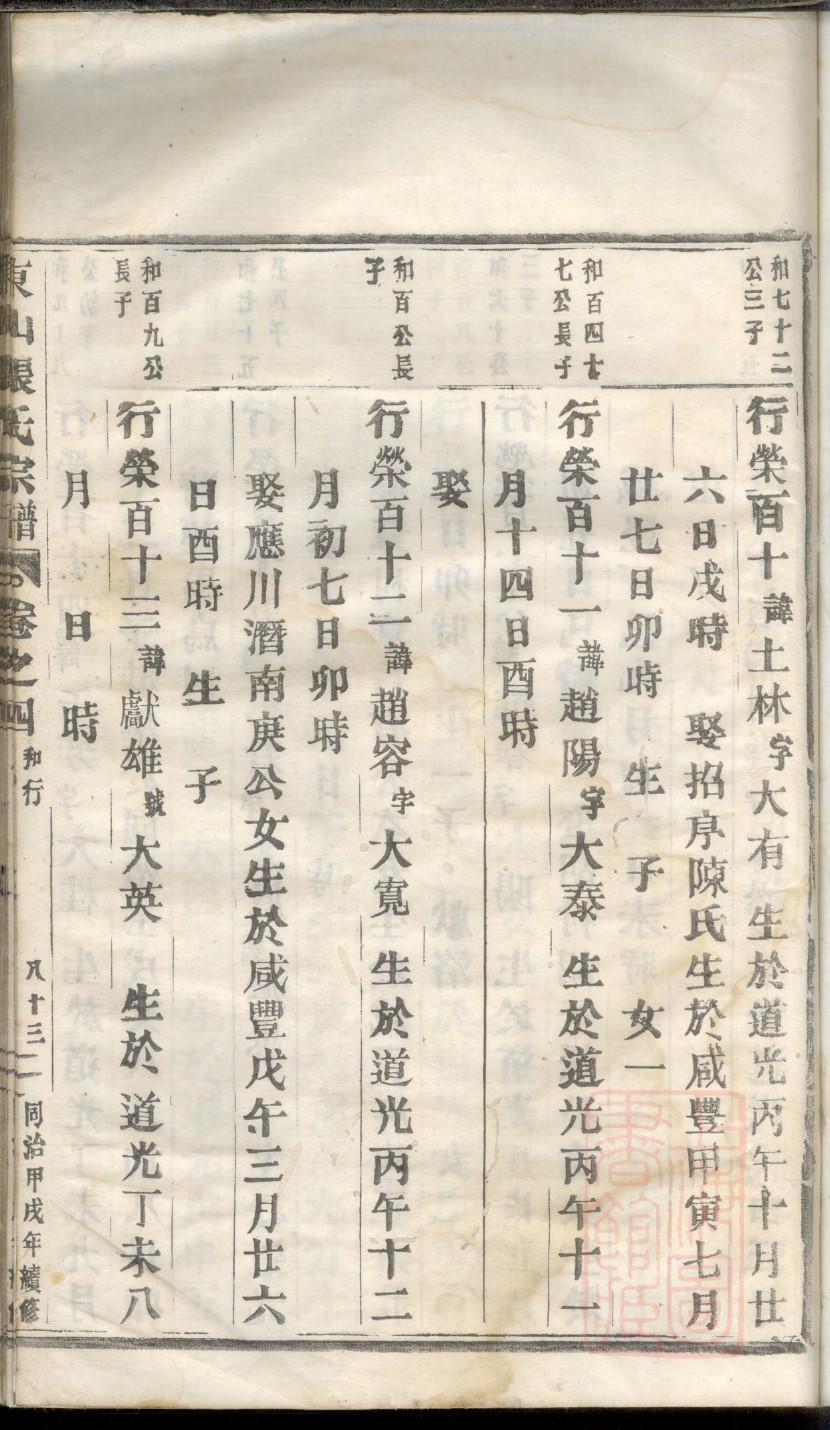 和七十二
公三子
行榮百十諱士林字大有生於道光丙午十月廿
六日戌時 娶招序陳氏生於咸豐甲寅七月
廿七日卯時 生 子 女一
和百四十
七公長子
行榮百十一諱趙陽字大泰 生於道光丙午十一
月十四日酉時
娶
和百公長
子
行榮百十二諱趙容字大寬 生於道光丙午十二
月初七日卯時
娶應川潛南庚公女生於咸豐戊午三月廿六
日酉時 生 子
和百九公
長子
行榮百十三諱獻雄號大英 生於道光丁未八
月 日 時
東山張氏宗譜 卷之四 和行 八十三 同治甲戌年續修